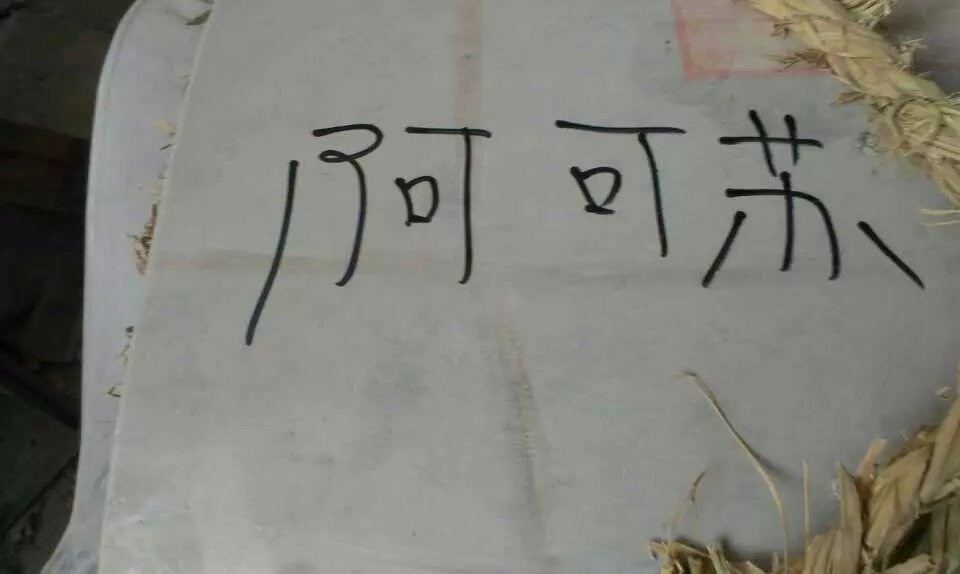 阿可苏